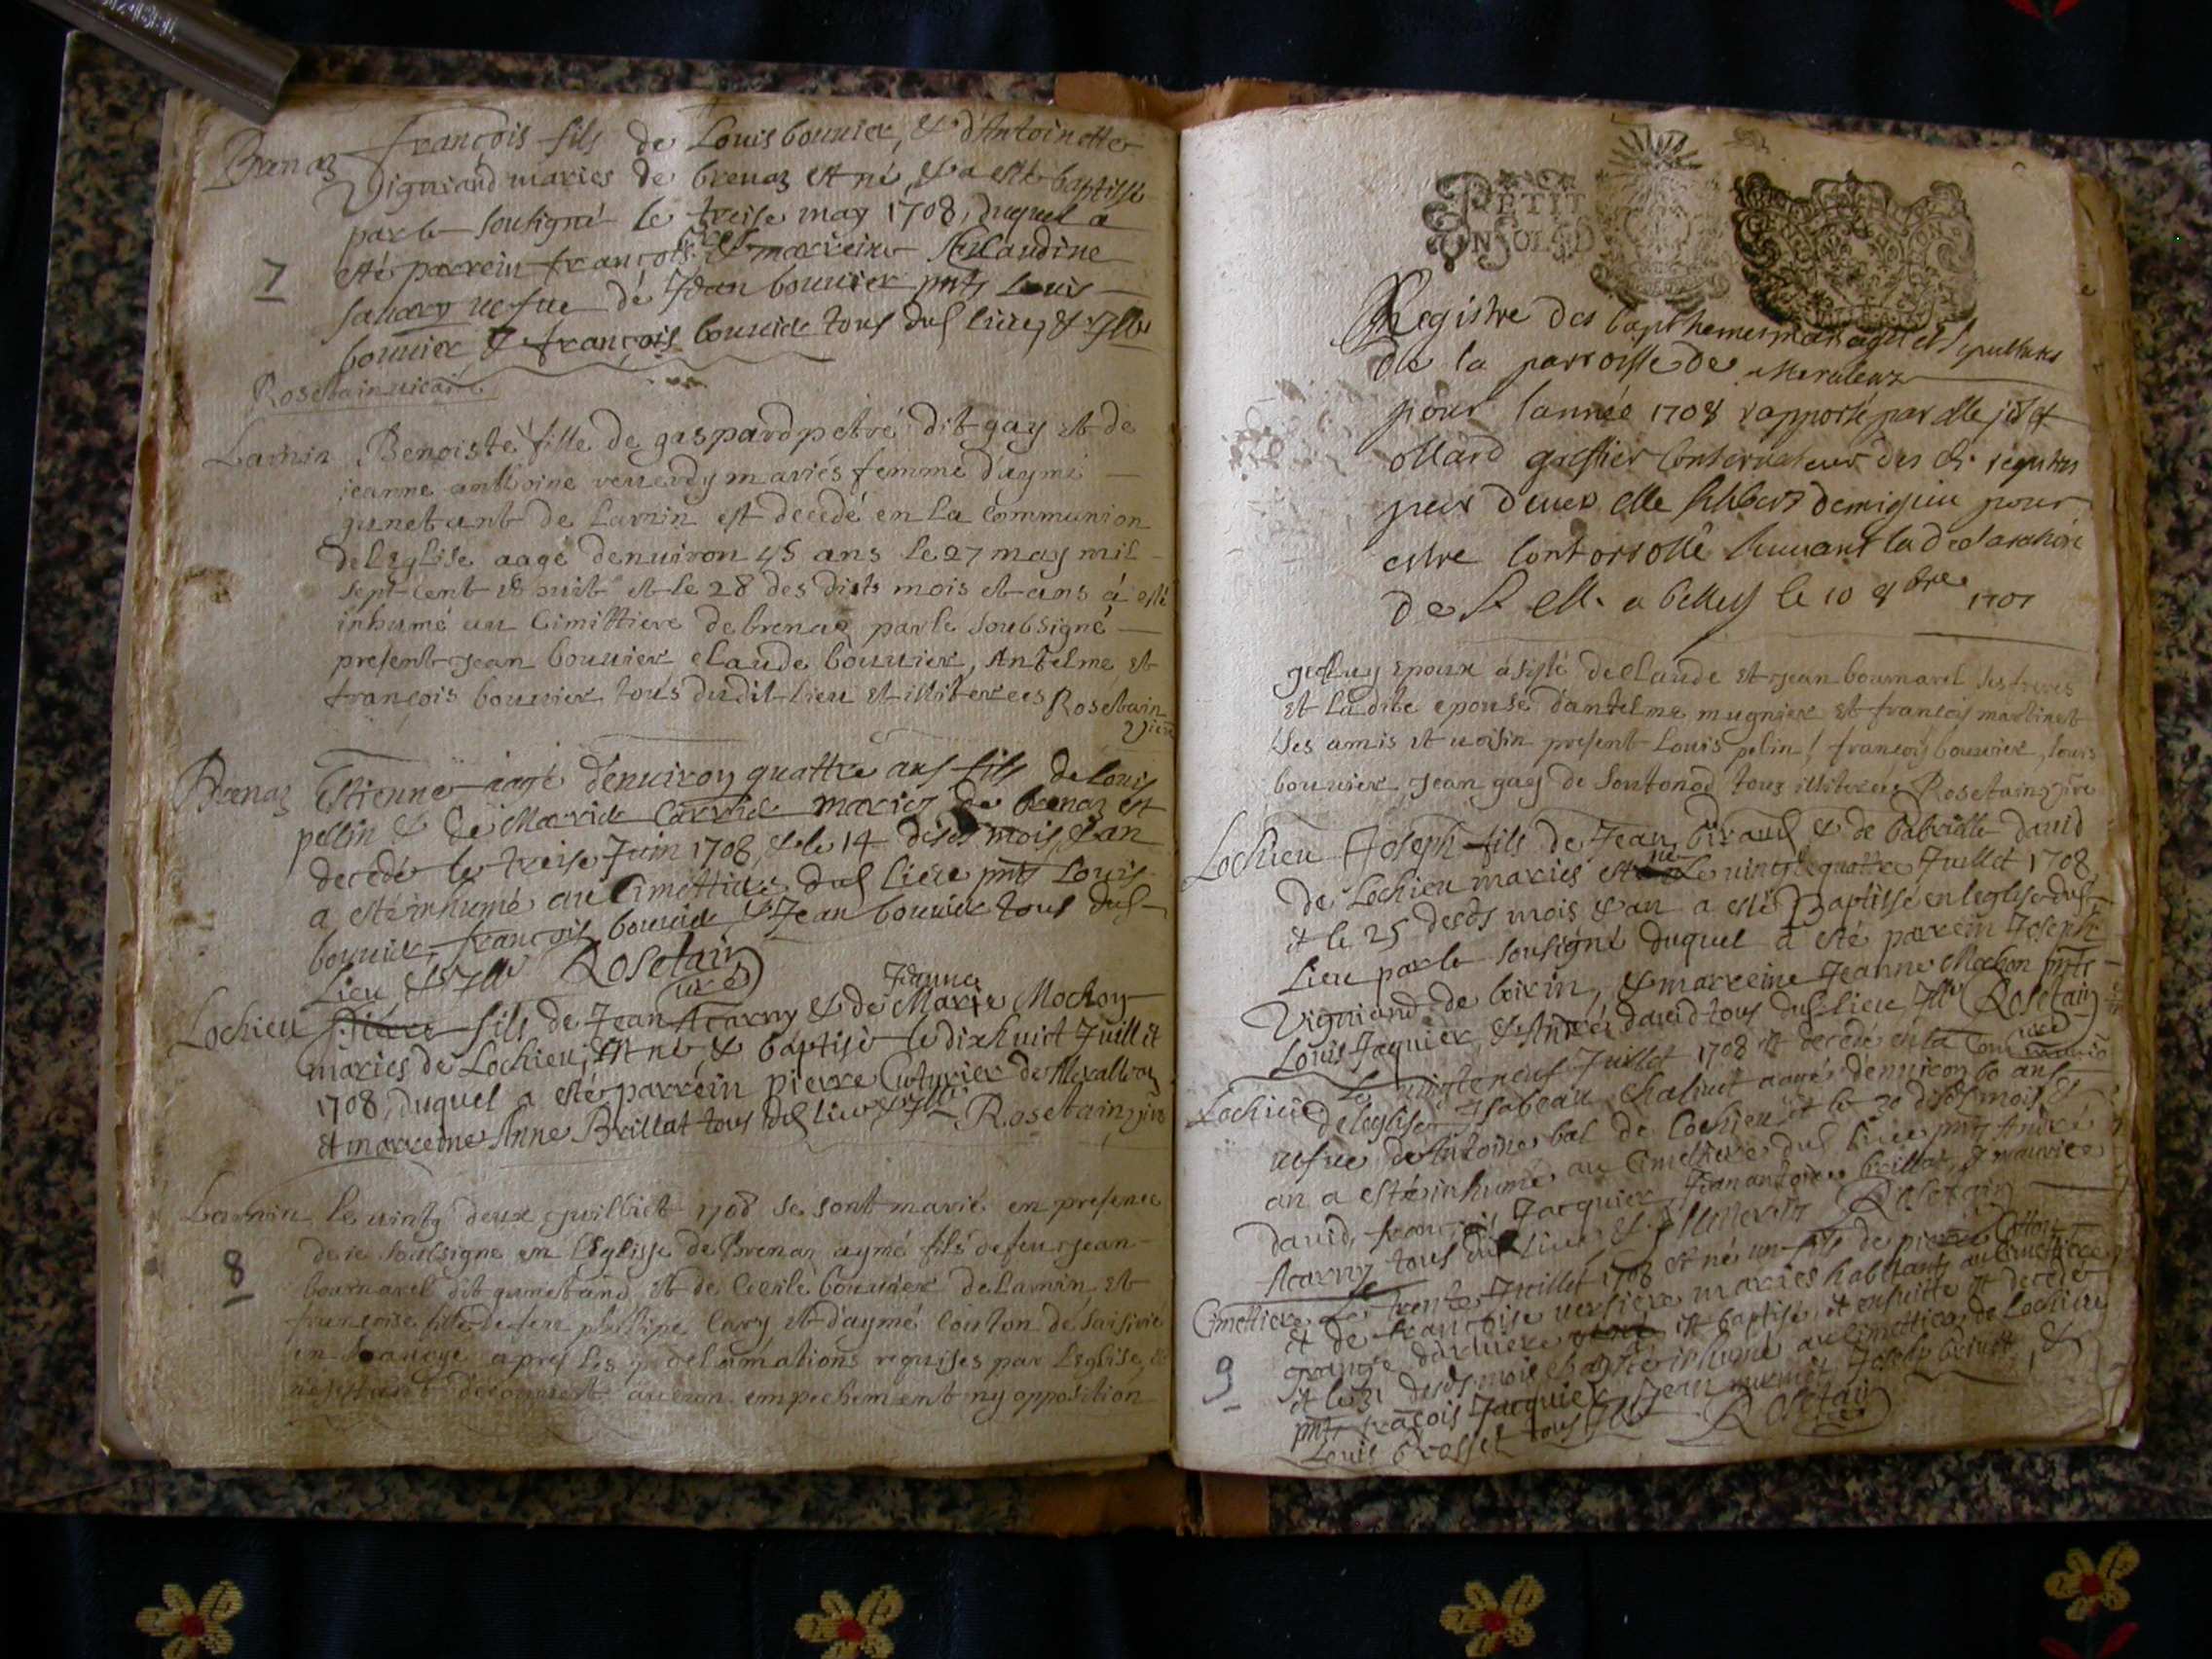 Brenaz françois fils de Louis bouuier, & d'Antoinette
Vigniand maries de brenaz est né, & a esté baptisé
par le sousigné le treise may 1708, duquel a
7 esté parrein françois & marreine Claudine
uefue de Jean bouuier pnts Louis
bouuier & françois bouuier tous dud lieu, & Illr
Rosetain uicaire
Lamin Benoiste fille de gaspard petré dit gay et de
jeanne anthoine mariés femme d'aymé
de Lamin est decedé en La communion
de L'eglise aagé denuiron 45 ans le 27 may mil
sept cent & huit et le 28 des dists mois et ans á esté
inhumé au Cimittiere de brenaz par le soubsigné
present jean bouuier claude bouuier, Antelme et
françois bouuier tous dudit lieu et illiterees Rosetain
Vicre
Brenaz Estienne aagé d'enuiron quattre ans fils de louis
pellin & de Marie Carrie maries de brenaz est
decedé le treise Juin 1708, & le 14 desds mois & an
a esté inhumé au Cimettiere dud lieu pnts Louis
bouuier, françois bouuier & Jean bouuier tous dud
Lieu & Illr Rosetain
uire
Jeanne
Lochieu Pierre fils de Jean Acarry & de Marie Mochon
maries de Lochieu, est né & baptisé le dixhuict Juillet
1708, duquel a esté parrein pierre Cuturier de
et marreine Anne Brillat tous dud lieu & Illr Rosetain uire
Lamin le uintg deux juilliet 1708 se sont marié en presence
de ie soubsigné en L'Eglisse de Brenaz aymé fils de feu jean
8 bournarel dit et de Cecile bouuier de Lamin et
françoise fille de feu philipe Cary et d'aymé de
en sauoye apres Les proclamations requises par L'eglise, &
decouuert aucun empechement ny opposition
PETIT
EN SOLD
Registre des bapthemes mariages et sepultures
de la parroisse de
pour l'année 1708 rapporté par Me
ollard greffier Conservateur des d. registres
par deuer Me demigieu pour
estre Contorrollé suiuant la declaration
de S. M. a belley le 10 8bre 1707
epoux asisté de Claude et jean bournarel ses freres
et La dite epouse d'antelme mugnier et françois martinet
Ses amis et uoisin present Louis pelin, françois bouuier, louis
bouuier, Jean gay de Sontonod tous illiterees Rosetain uire
Lochieu Joseph fils de Jean & de Gabrielle Dauid
de Lochieu maries est né le uingtquattre Juillet 1708
et le 25 desds mois & an a esté Baptissé en l'eglise dud
Lieu par le sousigné duquel a esté parrein Joseph
Vigniand de & marreine Jeanne Mochon pnts
Louis Jaquier, & André dauid tous dud lieu Illr Rosetain
uire
Le uintneuf Juillet 1708 est decedé en la Communio
Lochieu de l'eglise Isabeau Chaliuet aagé d'enuiron 60 ans
uefue de Antoine bal de Lochieu et le 30 desds mois &
an a esté inhumé au Cimettiere dud lieu pnts André
dauid, françois Jacquier, Jean antoine brillat, & maurice
Acarry tous dud lieu & Illiterés Rosetain
Le trente Juillet 1708 est né un fils de pierre
Cimettiere et de françoise uersiere maries habitants au cimettiere
grange d'arniere est baptisé, et ensuitte est decedé
9 et le 31 desds mois & an a esté inhumé au Cimettiere de Lochieu
pnts fraçois Jacquier, Jean Joseph &
Louis Grossel tous Illr Rosetain